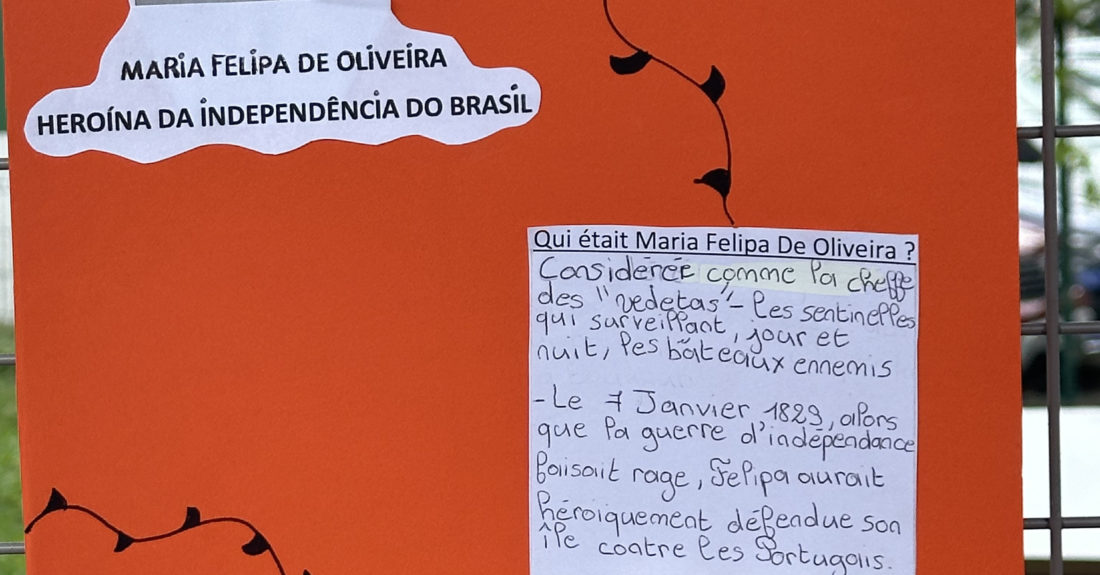 MARIA FELIPA DE OLIVEIRA
HEROÍNA DA INDEPENDÊNCIA DO BRASIL
Qui était Maria Felipa De Oliveira ?
Considérée comme la cheffe
des "vedetas" - les sentinelles
qui surveillant, jour et
nuit, les bâteaux ennemis
- Le 7 Janvier 1823, alors
que la guerre d'indépendance
faisait rage, Felipa aurait
héroïquement défendue son
île contre les Portugais.